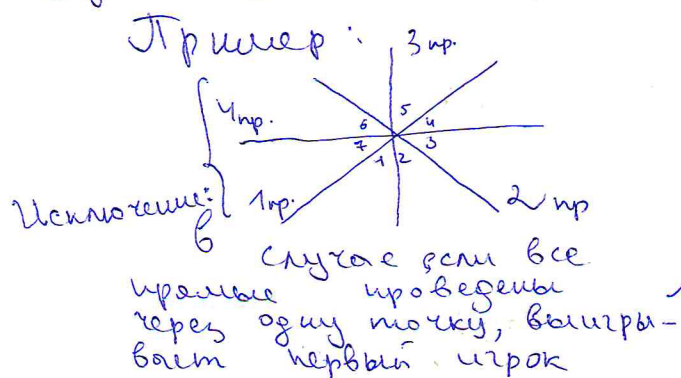 Пример:
3 пр.
4 пр.
5
6
4
7
3
1
2
1 пр.
2 пр
Исключение:
в
случае если все
прямые проведены
через одну точку, выигры-
вает первый игрок